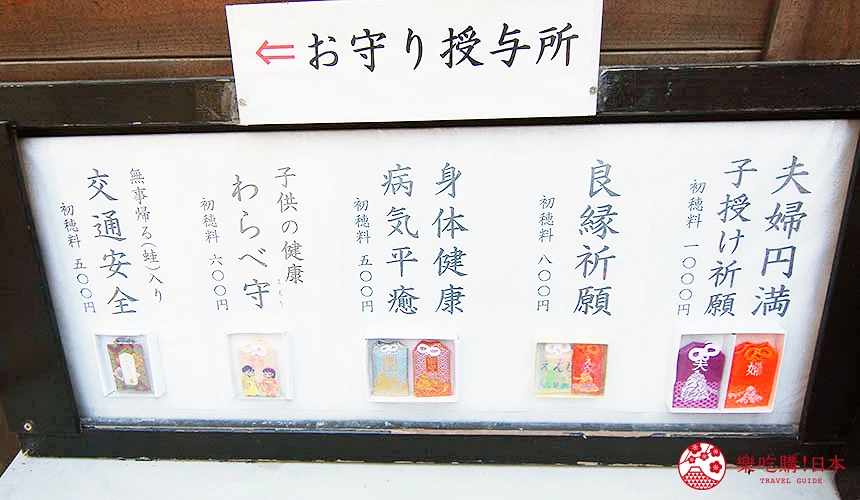 ⇐お守り授与所
夫婦円満
子授け祈願
初穂料 一〇〇〇円
良縁祈願
初穂料 八〇〇円
身体健康
病気平癒
初穂料 五〇〇円
子供の健康
わらべ守
まもり
初穂料 六〇〇円
無事帰る(蛙)入り
交通安全
初穂料 五〇〇円
夫
婦
えんむ
樂吃購!日本
TRAVEL GUIDE